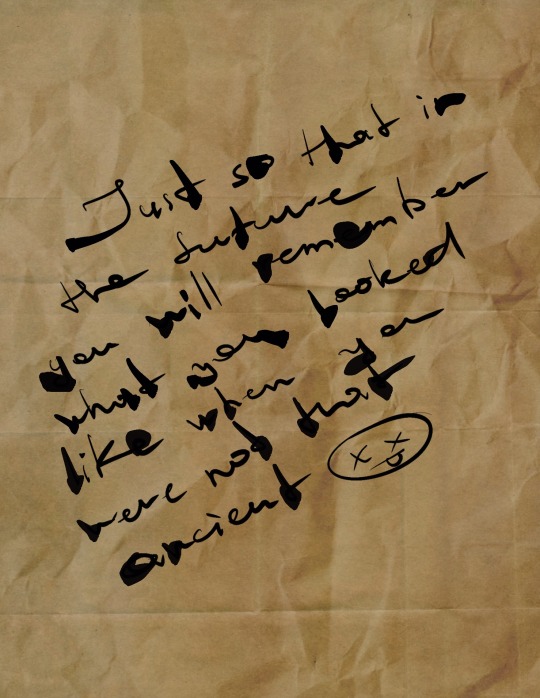 Just so that in
the future
you will remember
what you looked
like when you
were not that
ancient